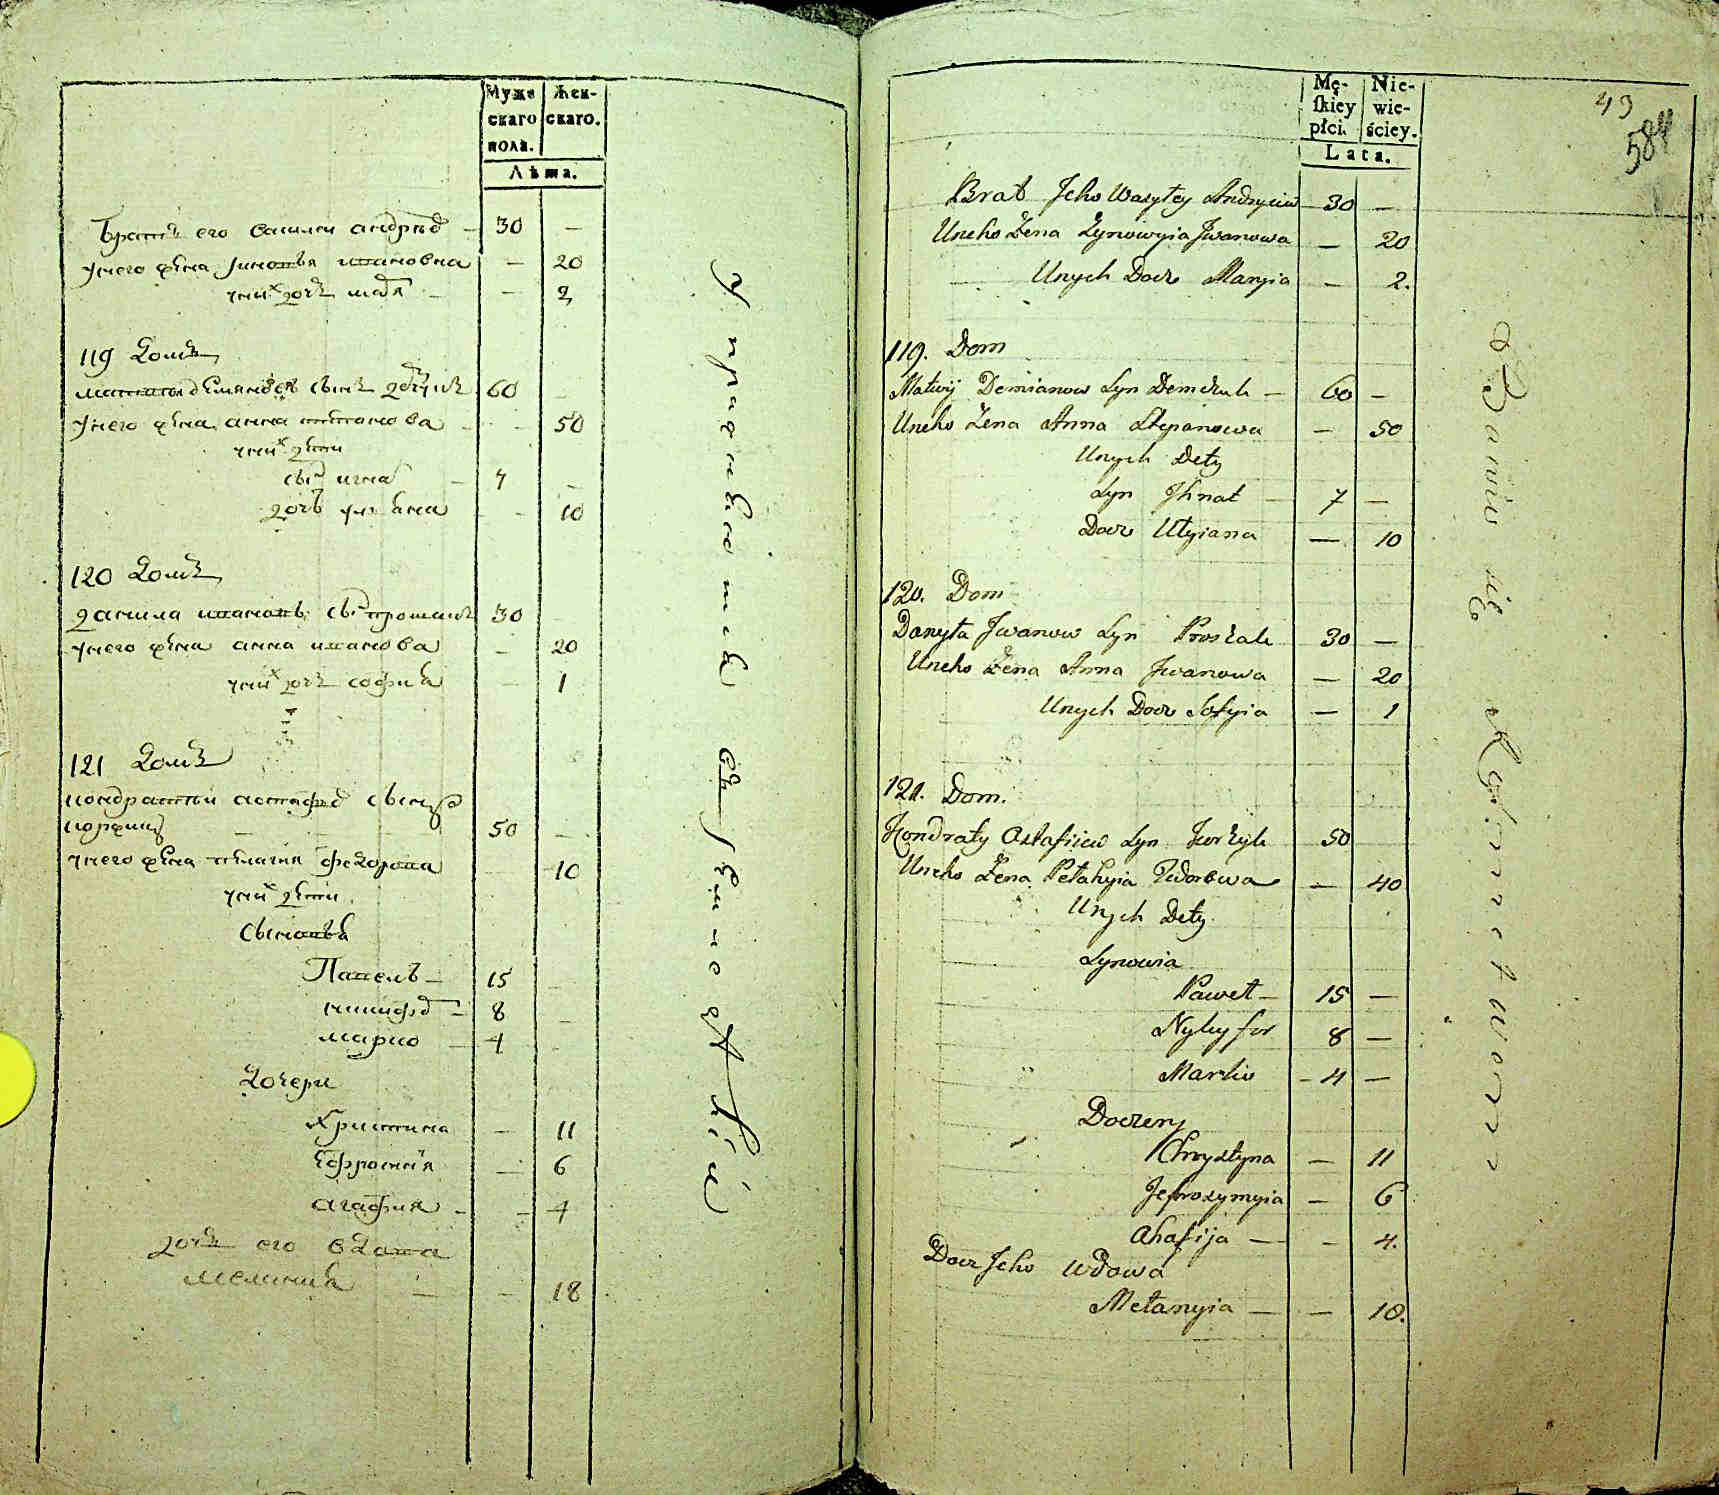 Муже
скаго
пола.
Жен-
скаго.
Лѣта.
Братъ его василеи андрѣев 30 —
унего жена зиновья ивановна — 20
уних дочь маря — 2
119 Домъ
матвѣи демяновъ сынъ 60 —
унего жена анна степанова — 50
уних дети
сынъ игнат 7 —
дочь улъяна — 10
120 Домъ
данила ивановъ сынъ 30
унего жена анна иванова — 20
уних дочь софия — 1
121 Домъ
кондратеи астафьев сынъ
50 —
унего жена пелагия федорова 10
уних дети
сыновья
Павелъ — 15 —
никифор — 8 —
марко — 4 —
Дочери
Христина — 11
Ефросиня — 6
агафия — 4
дочь его вдова
мелания — 18
Mę-
skiey
płci.
Nie-
wie-
ściey.
Lata.
43
584
Brat Jeho Wasyłey Andryiew 30 —
Uneho Żena Zynowyia Jwanowa — 20
Unych Docz Maryia — 2.
119. Dom
Matwij Demianow Syn Demczuk — 60 —
Uneho Żena Anna Stepanowa — 50
Unych Dety
Syn Ihnat — 7 —
Docz Ulyiana — 10
120. Dom
Danyła Jwanow Syn 30 —
Uneho Żena Anna Jwanowa — 20
Unych Docz Sofyia — 1
121. Dom.
Kondraty Ostafijew Syn 50
Uneho Żena Pełahyia — 40
Unych Dety
Synowia
Paweł — 15 —
Nykyfor 8 —
Marko — 4 —
Doczery
Chrystyna — 11
Jefrosymyia — 6
Ahafija — — 4.
Docz Jeho wdowa
Mełanyia — — 18.
Bawią się